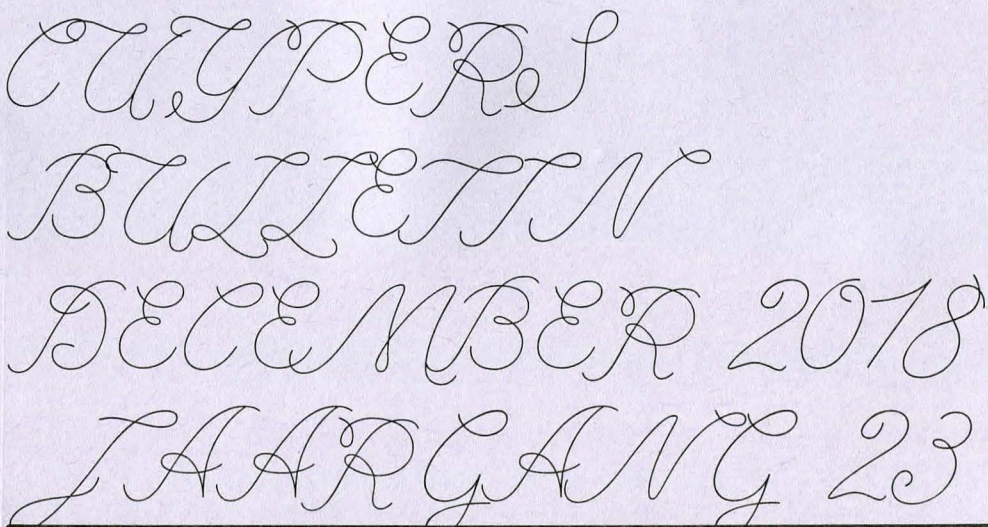 CUYPERS
BULLETIN
DECEMBER 2018
JAARGANG 23